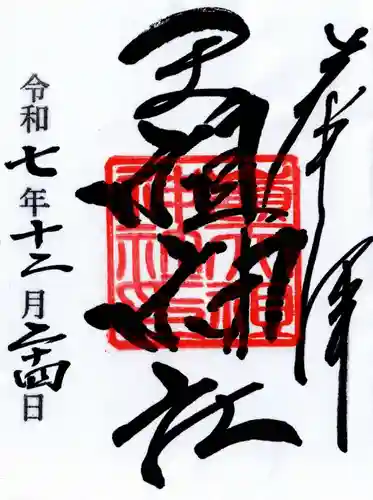 奉拝
天祖神社
令和七年十二月二十四日